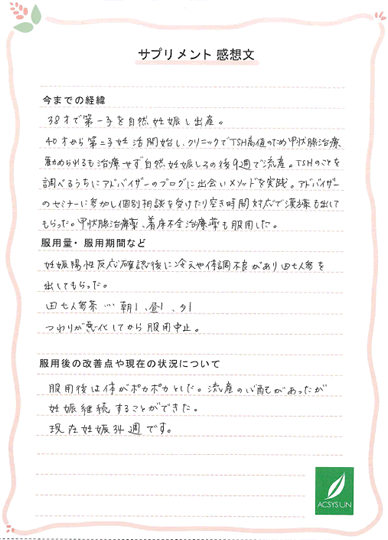 サプリメント 感想文
今までの経緯
38才で第一子を自然妊娠し出産。
40才から第二子妊活開始し、クリニックでTSH高値のため甲状腺治療
勧められるも治療せず自然妊娠しその後9週で流産。TSHのことを
調べるうちにアドバイザーのブログに出会いメソッドを実践。アドバイザー
のセミナーに参加し個別相談を受けたり空き時間対応で漢方も出して
もらった。甲状腺治療薬、着床不全治療薬も服用した。
服用量・服用期間など
妊娠陽性反応確認後に冷えや体調不良があり田七人参を
出してもらった。
田七人参茶…朝1、昼1、夕1
つわりが悪化してから服用中止。
服用後の改善点や現在の状況について
服用後は体がポカポカとした。流産の心配があったが
妊娠継続することができた。
現在妊娠34週です。
ACSYSUN